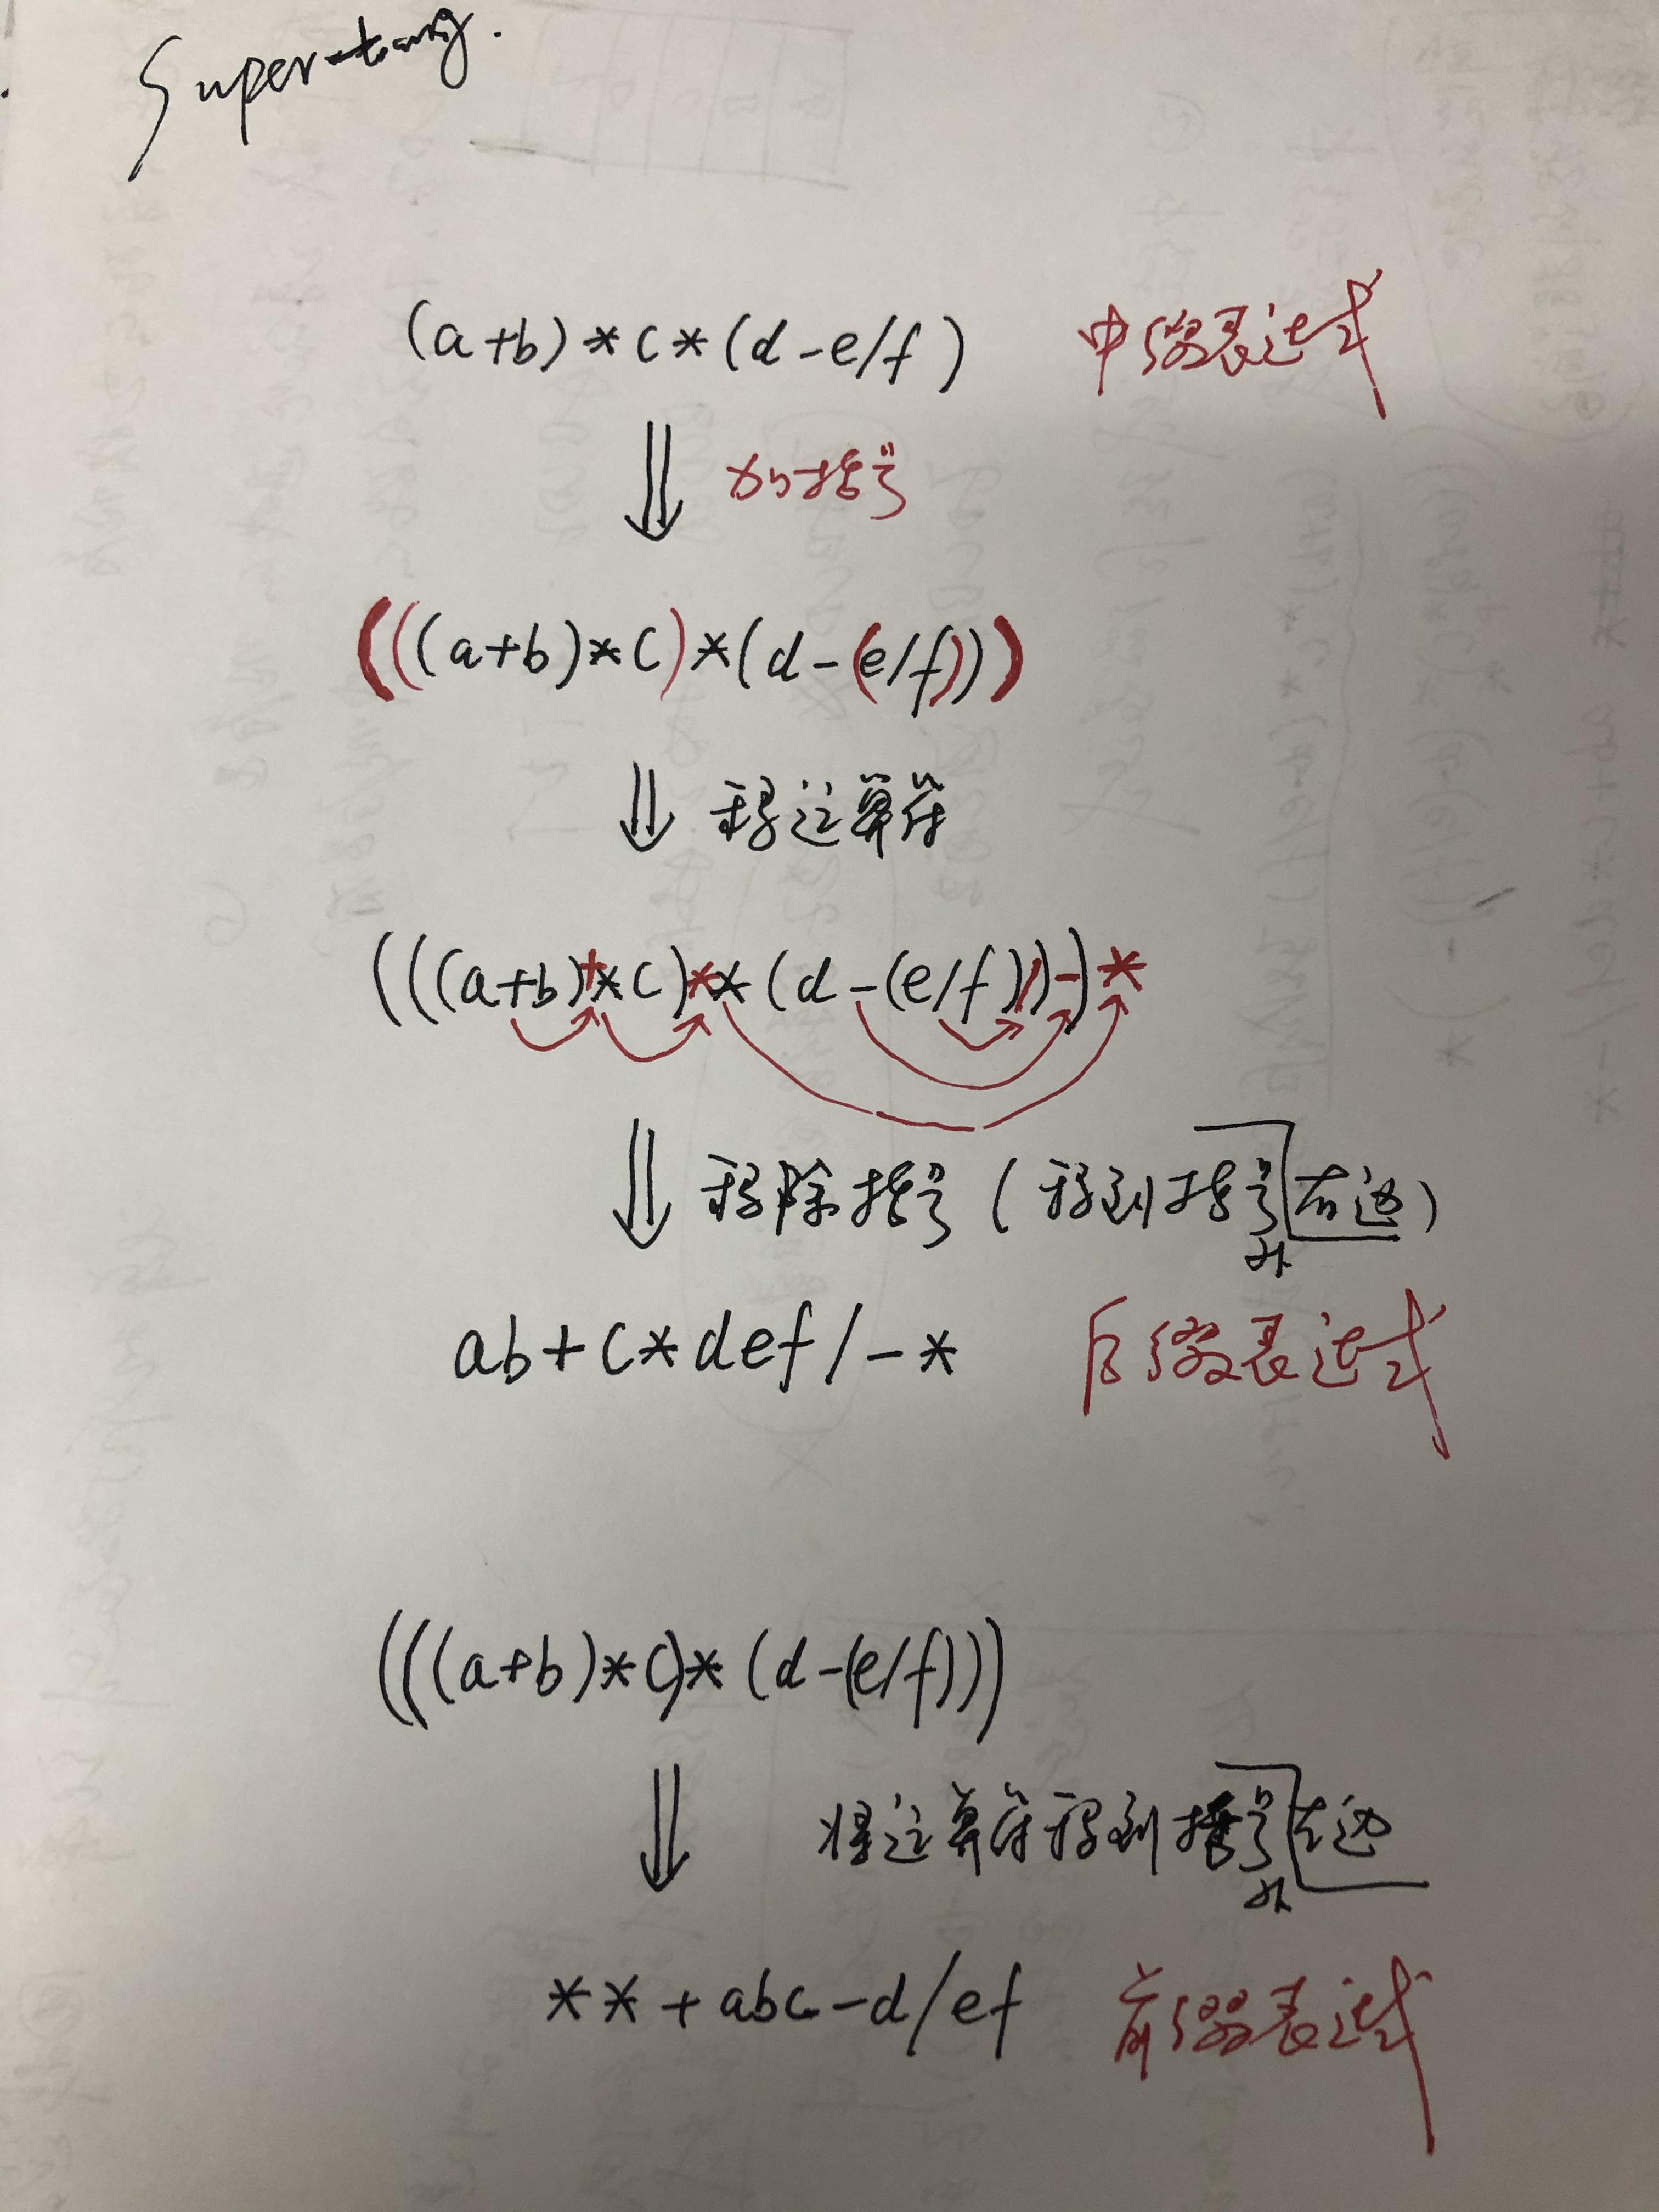 Super-tang.
(a+b)*c*(d-e/f) 中缀表达式
加括号
(((a+b)*c)*(d-(e/f)))
移运算符
(((a+b)+*c)**(d-(e/f)/)-)*
移除括号(移到括号外右边)
ab+c*def/-* 后缀表达式
(((a+b)*c)*(d-(e/f)))
将运算符移到括号外左边
**+abc-d/ef 前缀表达式